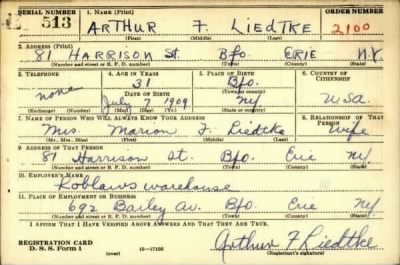 SERIAL NUMBER 1. NAME (Print) ORDER NUMBER
513 ARTHUR F. LIEDTKE 2100
(First) (Middle) (Last)
2. ADDRESS (Print)
81 HARRISON St. Bfo. ERIE N.Y.
(Number and street or R. F. D. number) (Town) (County) (State)
3. TELEPHONE 4. AGE IN YEARS 5. PLACE OF BIRTH 6. COUNTRY OF CITIZENSHIP
none 31 Bfo.
DATE OF BIRTH (Town or county)
July 7 1909 NY USA
(Exchange) (Number) (Mo.) (Day) (Yr.) (State or country)
7. NAME OF PERSON WHO WILL ALWAYS KNOW YOUR ADDRESS 8. RELATIONSHIP OF THAT PERSON
Mrs. Marion F. Liedtke Wife
(Mr., Mrs., Miss) (First) (Middle) (Last)
9. ADDRESS OF THAT PERSON
81 Harrison St. Bfo. Erie NY
(Number and street or R. F. D. number) (Town) (County) (State)
10. EMPLOYER'S NAME
Loblaws warehouse
11. PLACE OF EMPLOYMENT OR BUSINESS
692 Bailey Av. Bfo. Erie NY
(Number and street or R. F. D. number) (Town) (County) (State)
I AFFIRM THAT I HAVE VERIFIED ABOVE ANSWERS AND THAT THEY ARE TRUE.
REGISTRATION CARD
D. S. S. Form 1 16—17105 Arthur F Liedtke
(over) (Registrant's signature)